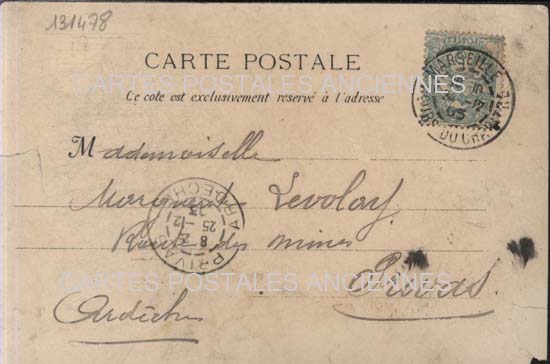 131478
CARTE POSTALE
CARTES POSTALES ANCIENNES
Ce côté est exclusivement réservé à l'adresse
MARSEILLE
COURS DU CHAPITRE
Mademoiselle
Levolay
Route des mines
Privas
Ardèche
PRIVAS
ARDECHE
8
25 -12
03
CARTES POSTALES ANCIENNES